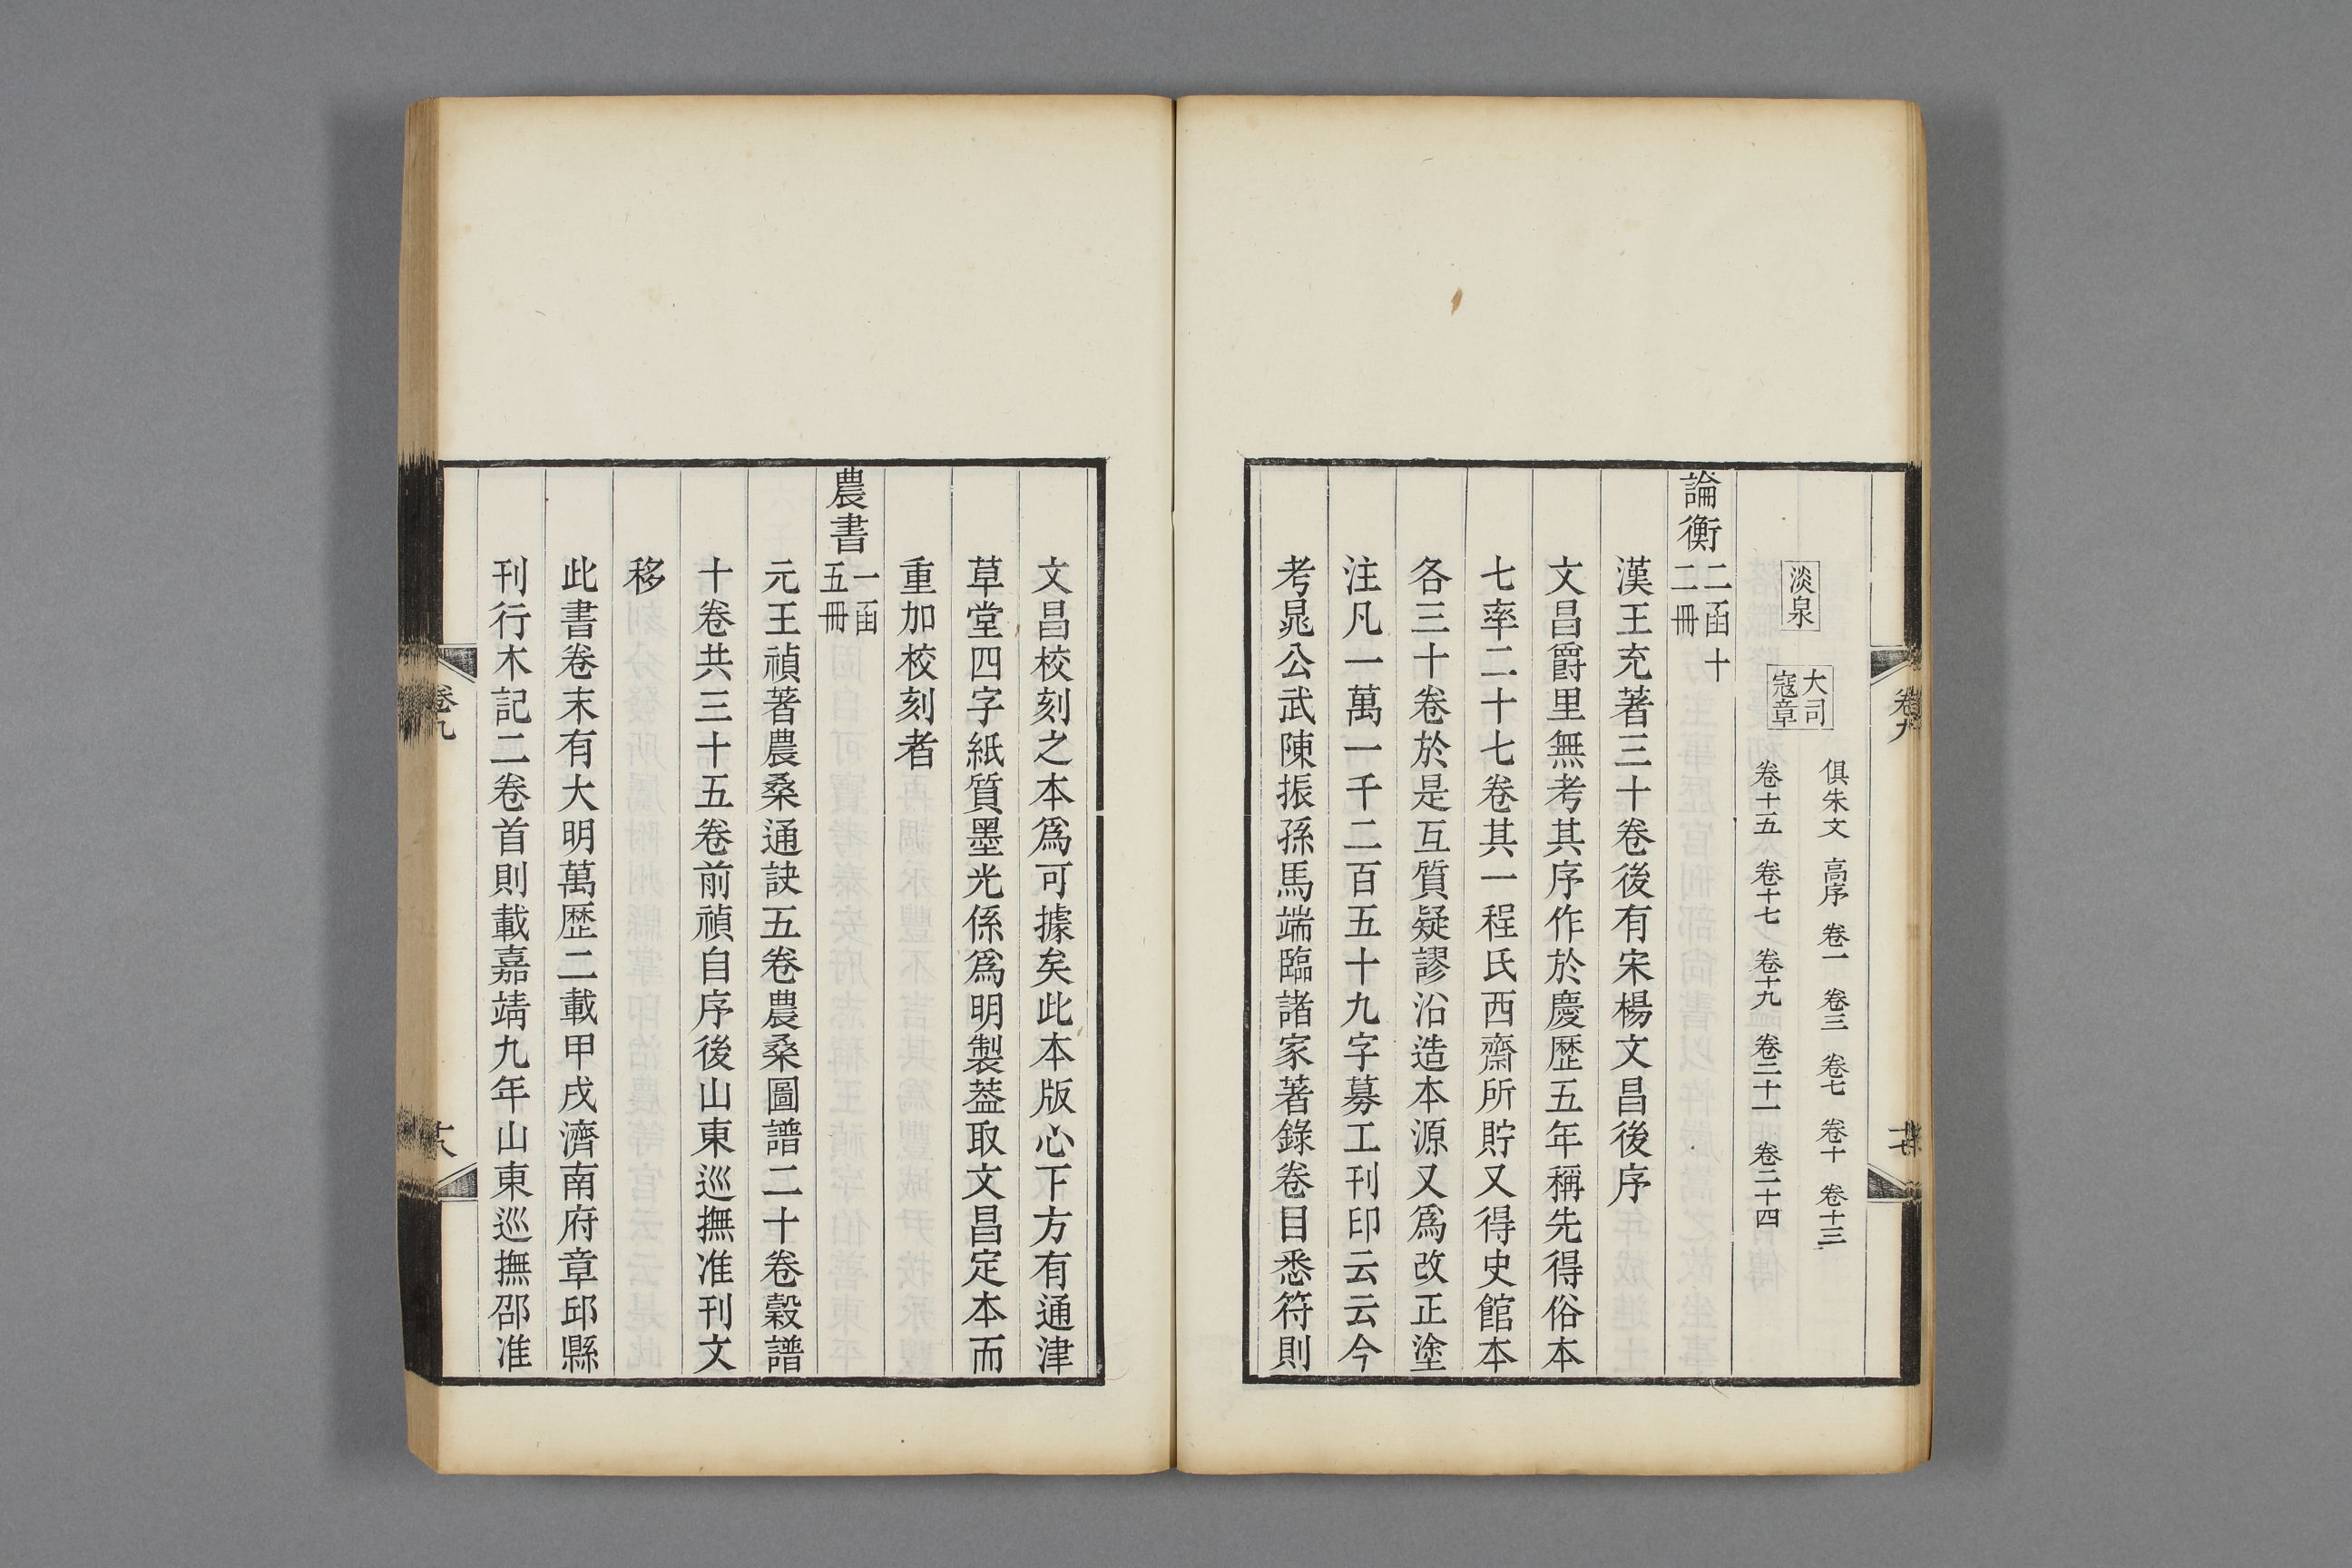 淡泉
大司
寇章
俱朱文 高序 卷一 卷三 卷七 卷十 卷十三
卷十五 卷十七 卷十九 卷二十一 卷二十四
論衡 二函十
二冊
漢王充著三十卷後有宋楊文昌後序
文昌爵里無考其序作於慶歷五年稱先得俗本
七率二十七卷其一程氏西齋所貯又得史館本
各三十卷於是互質疑謬沿造本源又爲改正塗
注凡一萬一千二百五十九字募工刊印云云今
考晁公武陳振孫馬端臨諸家著錄卷目悉符則
文昌校刻之本爲可據矣此本版心下方有通津
草堂四字紙質墨光係爲明製葢取文昌定本而
重加校刻者
農書 一函
五冊
元王禎著農桑通訣五卷農桑圖譜二十卷穀譜
十卷共三十五卷前禎自序後山東巡撫准刊文
移
此書卷末有大明萬歷二載甲戌濟南府章邱縣
刊行木記二卷首則載嘉靖九年山東巡撫邵准
卷九
卷九
十八